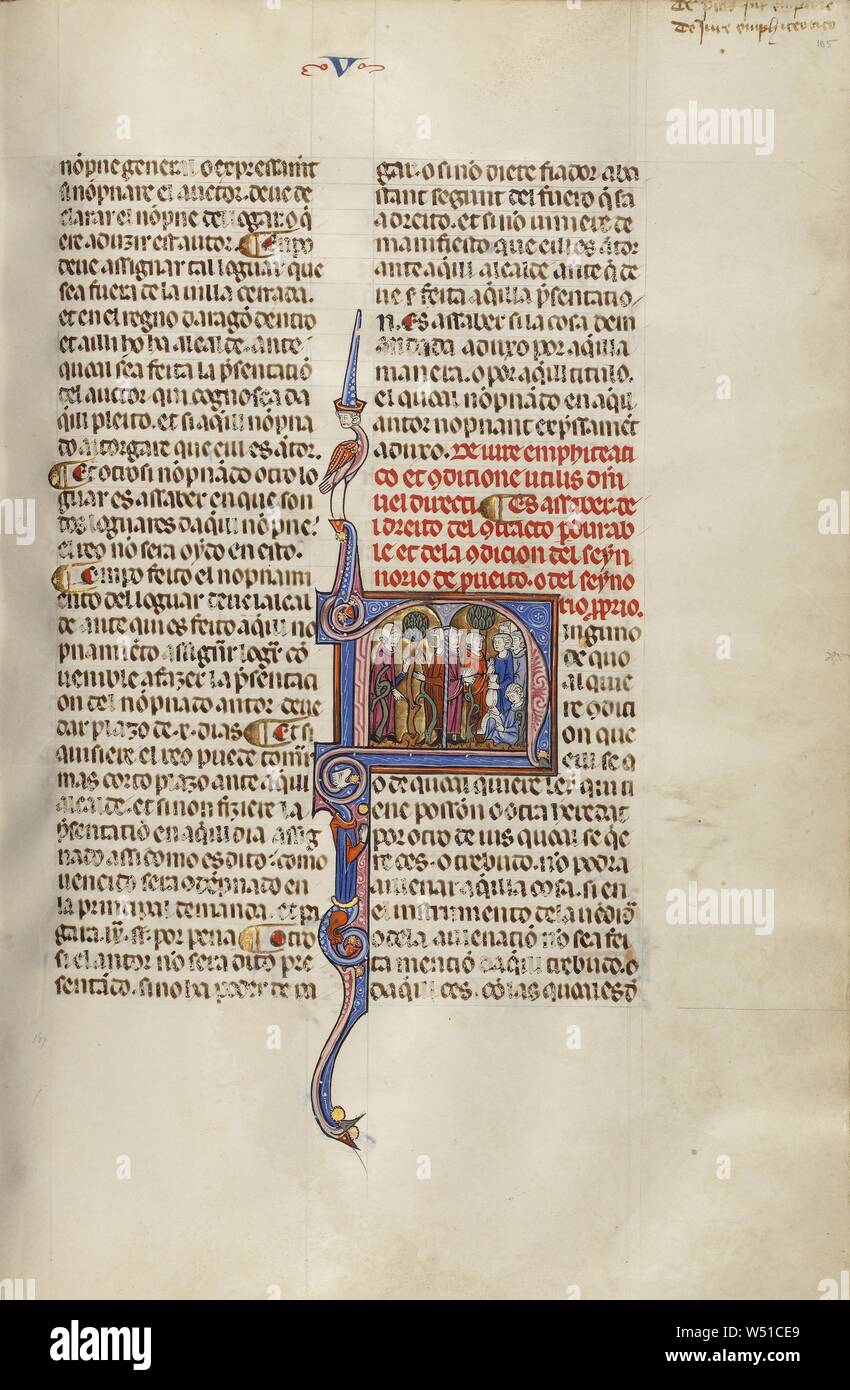 de iure emphiteotico
185
V
nōpne general o expressamt
si nōpnare el auctor. deue de
clarar el nōpne del logar. o q̄
ere aduzir est autor. Empo
deue assignar tal loguar que
sea fuera de la uilla cerrada.
et en el regno daragō dentro
et ailli ho ha alcalde. ante
quoal sea feita la p̄sentatiō
del auctor. qui cognosca da
q̄ll pleito. et si aq̄ll nōpna
do atorgare que eill es ator.
Et otrosi nōpnādo otro lo
guar es assaber en que son
dos loguares daq̄ll nōpne.
el reo nō sera oydo en esto.
Empo feito el nopnami
ento del loguar deue lalcal
de ante qui es feito aq̄ll no
pnamiēto assignar logar cō
uenible a fazer la p̄sentaci
on del nōpnado autor. deue
dar plazo de .x. dias. Et si
quisiere el reo puede tomar
mas corto plazo ante aq̄ll
alcalde. et si non fiziere la
p̄sentatiō en aq̄ll dia assig
nado assi como es dito. como
uencido sera 9dēpnado en
la principal demanda. et pa
gara .lx. ss. por pena. Otro
si el autor nō sera dito pre
sentado. si no ha poder de pa
gar. o si nō diere fiador aba
stant segunt del fuero q̄ sta
a dreito. et si nō uiniere de
manifiesto que eill es ator
ante aq̄ll alcalde ante q̄ de
ue s feita aq̄lla p̄sentatio
n. Es assaber si la cosa dem
andada aduxo por aq̄lla
manera. o por aq̄ll titulo.
el quoal nōpnādo en aq̄ll
autor nopnant exp̄ssamēt
aduxo. De iure emphiteati
co et 9ditione utilis dn̄i
uel directi. Es assaber de
l dreito del 9tracto p̄durab
le et de la 9dicion del seyn
norio de pueito. o del seyno
rio p̄prio.
inguno
de quo
al quie
re 9diti
on que
eill se a
o de quoal quiere ley qui ti
ene possōn o otra heredat
por otro de uis quoal se q̄e
re ces. o trebuto. no podra
allienar aq̄lla cosa. si en
el instrumento de la uēdiō
o de la allienatiō no sea fei
ta mentiō daq̄ll trebuto. o
daq̄ll ces. cō las quoales 9
alamy
Image ID: W51CE9
www.alamy.com